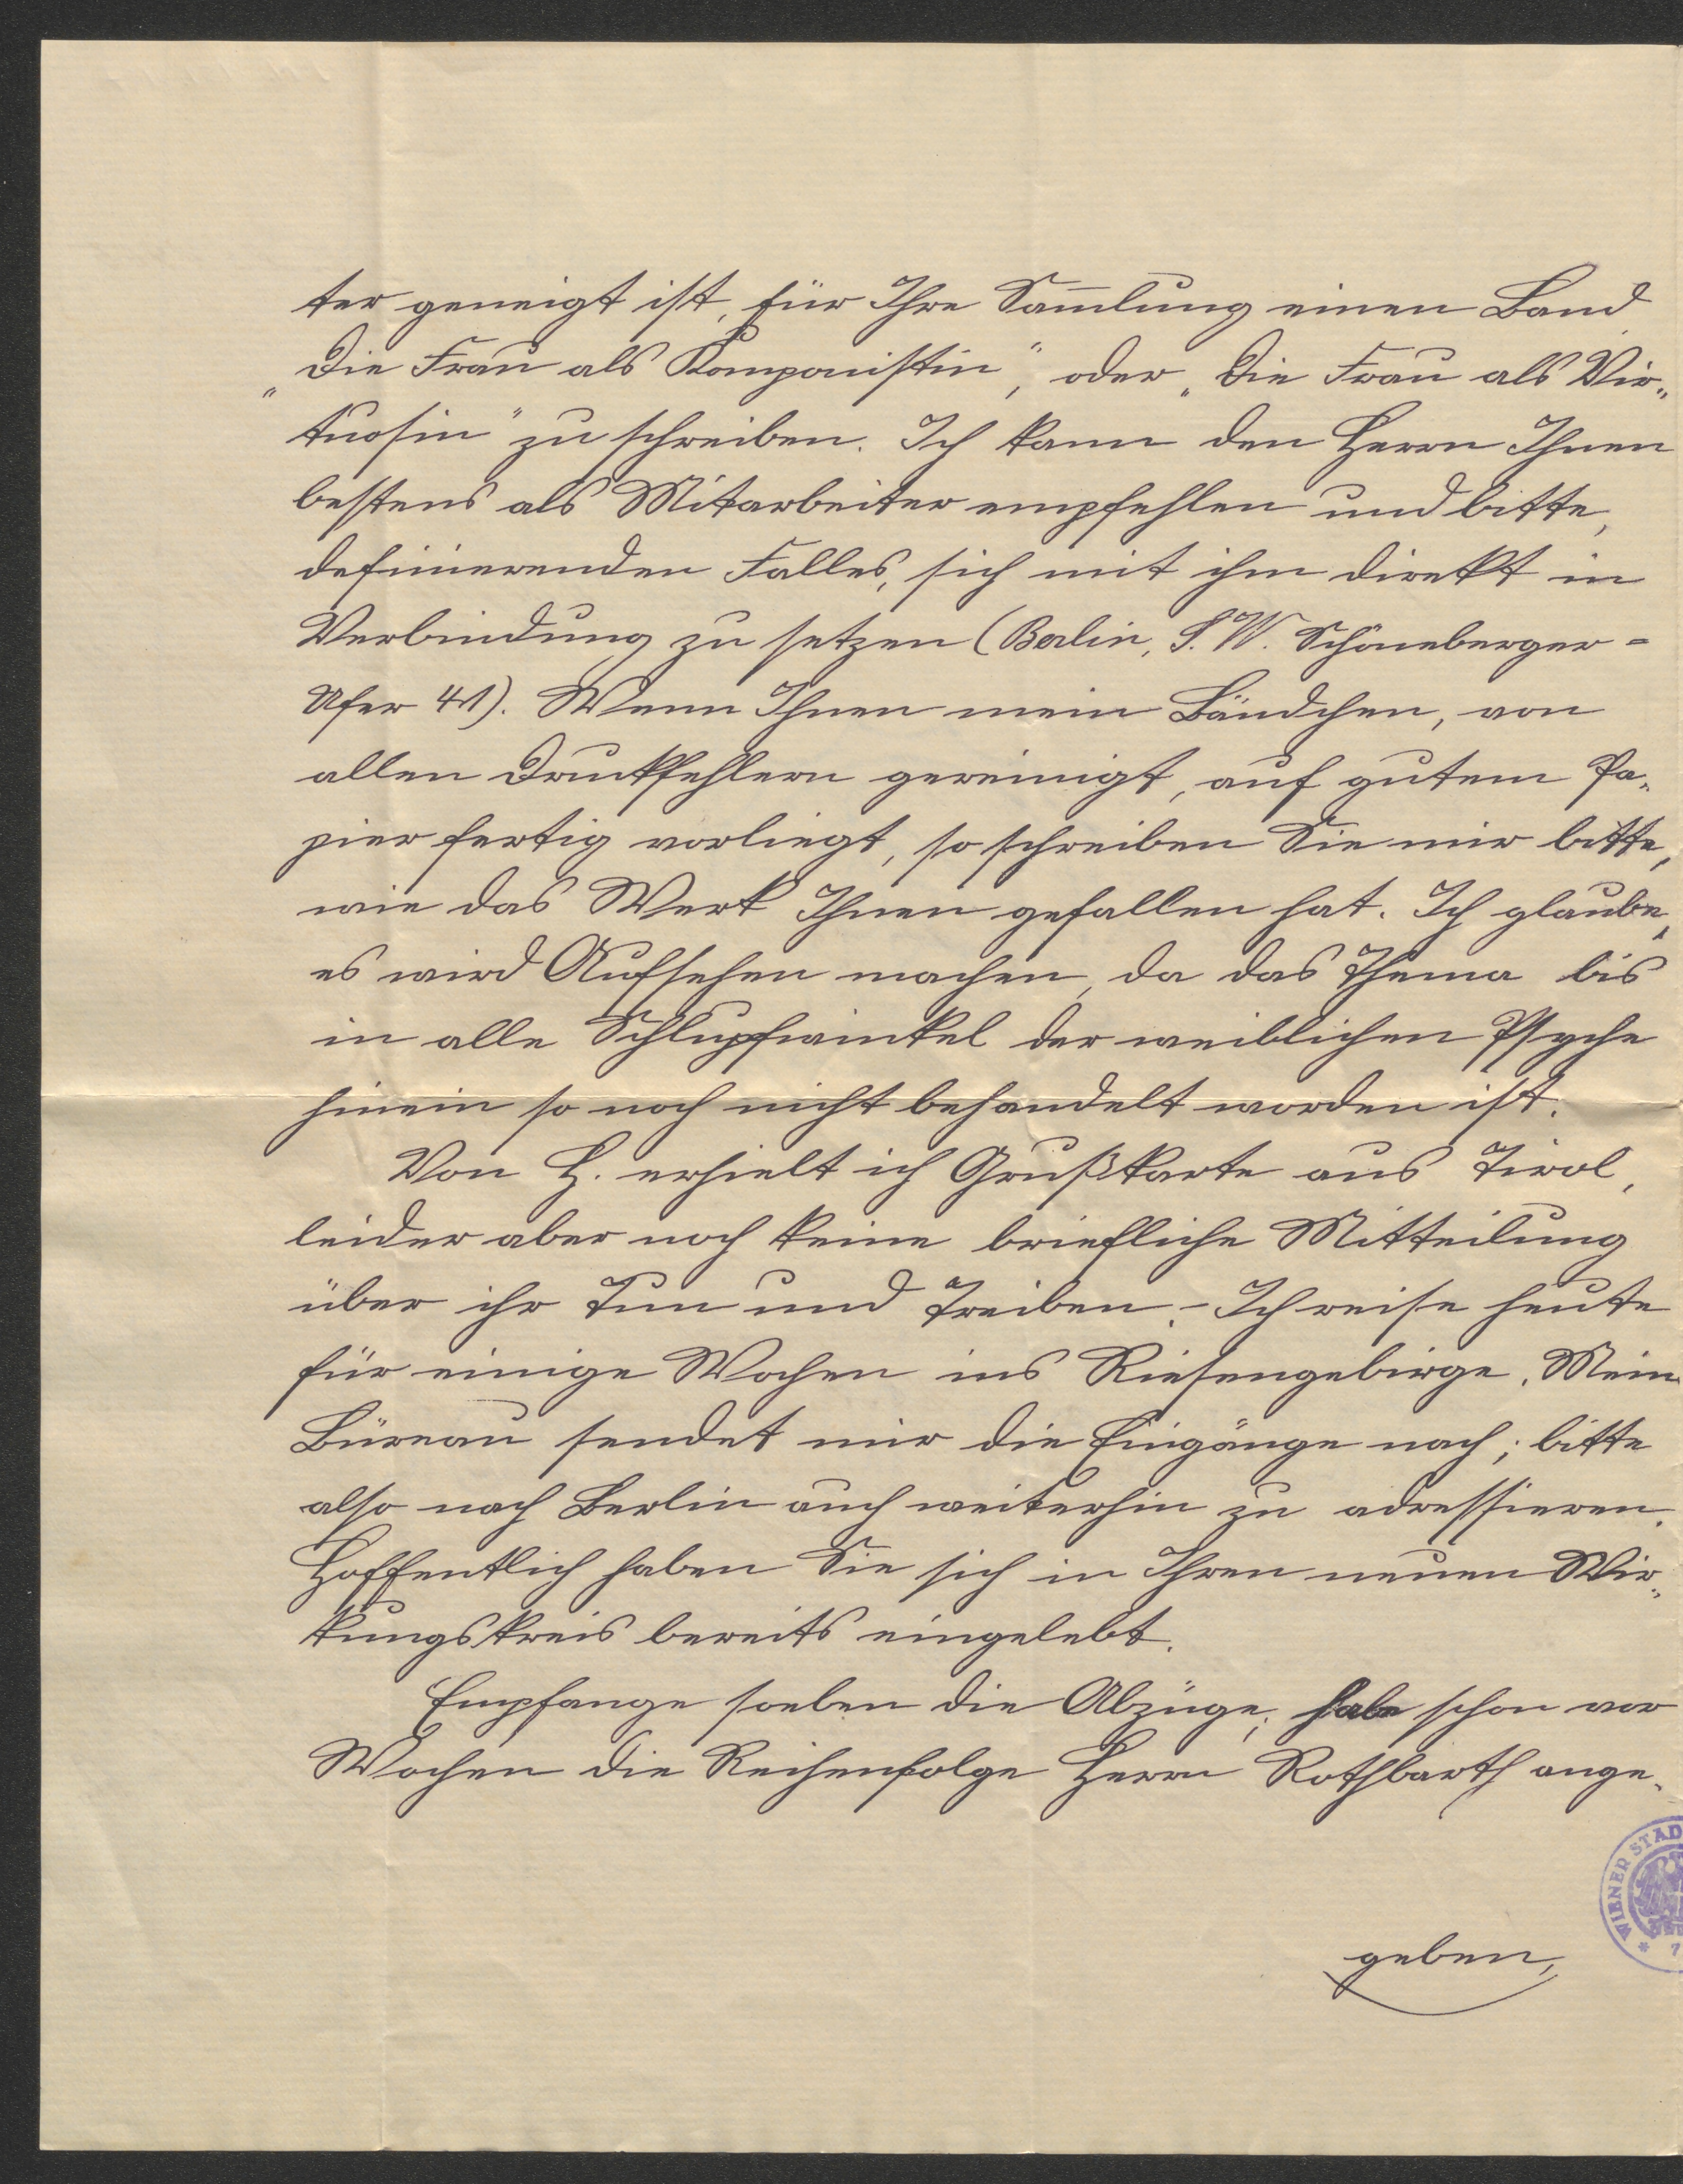 ter geneigt ist, für Ihre Sam̅lung einen Band
„Die Frau als Komponistin", oder „Die Frau als Vir„
tuosin" zu schreiben. Ich kann den Herrn Ihnen
bestens als Mitarbeiter empfehlen und bitte,
definierenden Falles, sich mit ihm direkt in
Verbindung zu setzen (Berlin, S. W. Schöneberger=
Ufer 41). Wenn Ihnen mein Bändchen, von
allen Druckfehlern gereinigt, auf gutem Pa„
pier fertig vorliegt, so schreiben Sie mir bitte,
wie das Werk Ihnen gefallen hat. Ich glaube,
es wird Aufsehen machen, da das Thema bis
in alle Schlupfwinkel der weiblichen Psyche
hinein so noch nicht behandelt worden ist.
Von H. erhielt ich Grußkarte aus Tirol,
leider aber noch keine briefliche Mitteilung
über ihr Tun und Treiben. – Ich reise heute
für einige Wochen ins Riesengebirge. Mein
Büreau sendet mir die Eingänge nach; bitte
also nach Berlin auch weiterhin zu adressieren.
Hoffentlich haben Sie sich in Ihren neuen Wir„
kungskreis bereits eingelebt.
Empfange soeben die Abzüge; habe schon vor
Wochen die Reihenfolge Herrn Rothbarth ange„
WIENER STAD
geben,